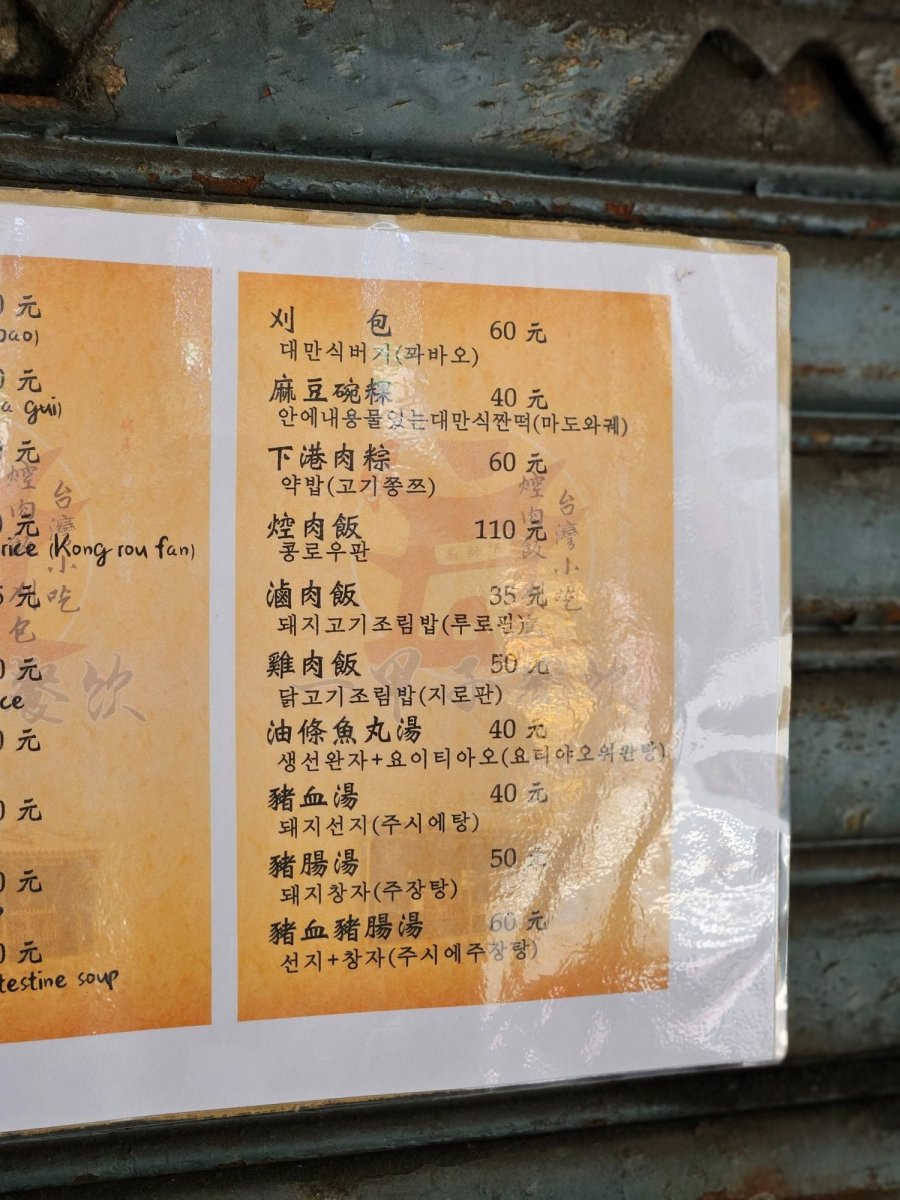 0 元
bao)
0 元
a gui)
元
0 元
rice (Kong rou fan)
5 元
0 元
ce
0 元
0 元
0 元
0 元
testine soup
焢肉飯 刈包
台灣小吃
餐飲
刈 包 60 元
대만식버거(꽈바오)
麻豆碗粿 40 元
안에내용물있는대만식짠떡(마도와궤)
下港肉粽 60 元
약밥(고기쫑쯔)
焢肉飯 110 元
콩로우판
滷肉飯 35 元
돼지고기조림밥(루로판)
雞肉飯 50 元
닭고기조림밥(지로판)
油條魚丸湯 40 元
생선완자+요이티아오(요티야오위완탕)
豬血湯 40 元
돼지선지(주시에탕)
豬腸湯 50 元
돼지창자(주장탕)
豬血豬腸湯 60 元
선지+창자(주시에주창탕)
焢肉飯
台灣小吃
一甲子餐飲